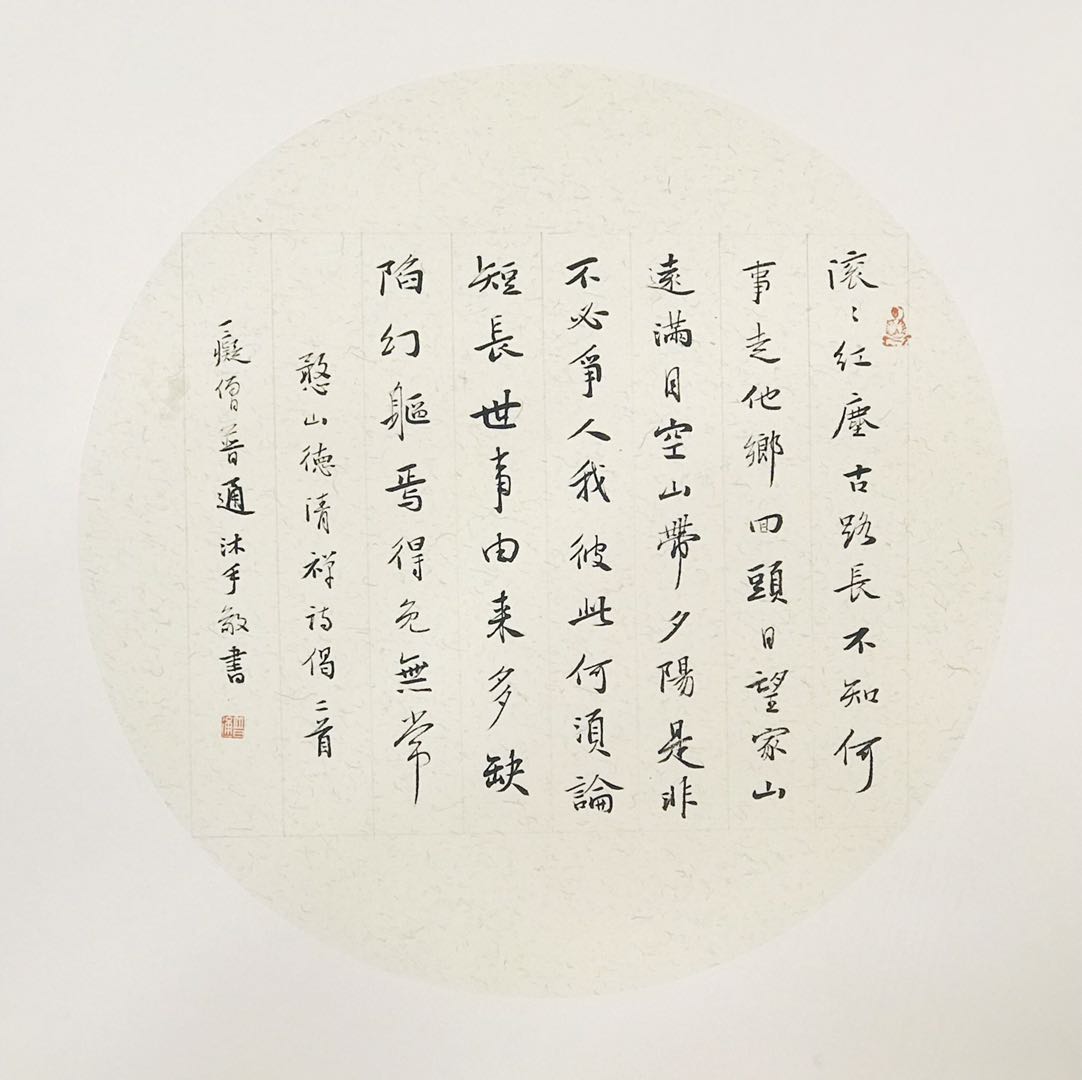 滚〻红塵古路長不知何
事走他鄉回頭日望家山
遠滿目空山帶夕陽是非
不必爭人我彼此何須論
短長世事由来多缺
陷幻軀焉得免無常
憨山德清禅诗偈二首
癡僧普通沐手敬書